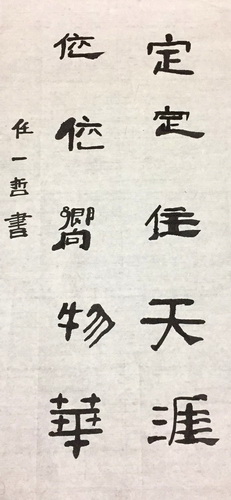 定定住天涯
依依嚮物華
任一哲書